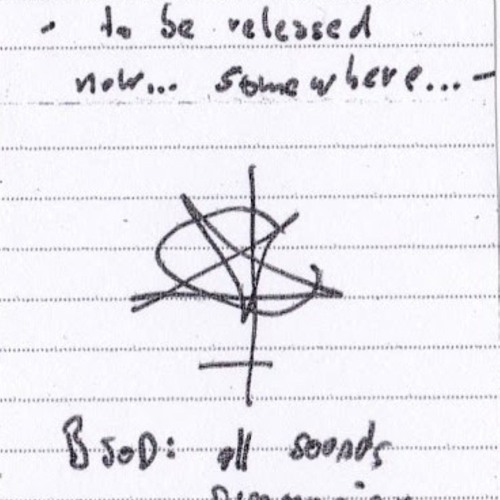 - to be released
now... somewhere... -
BJOD: all sounds